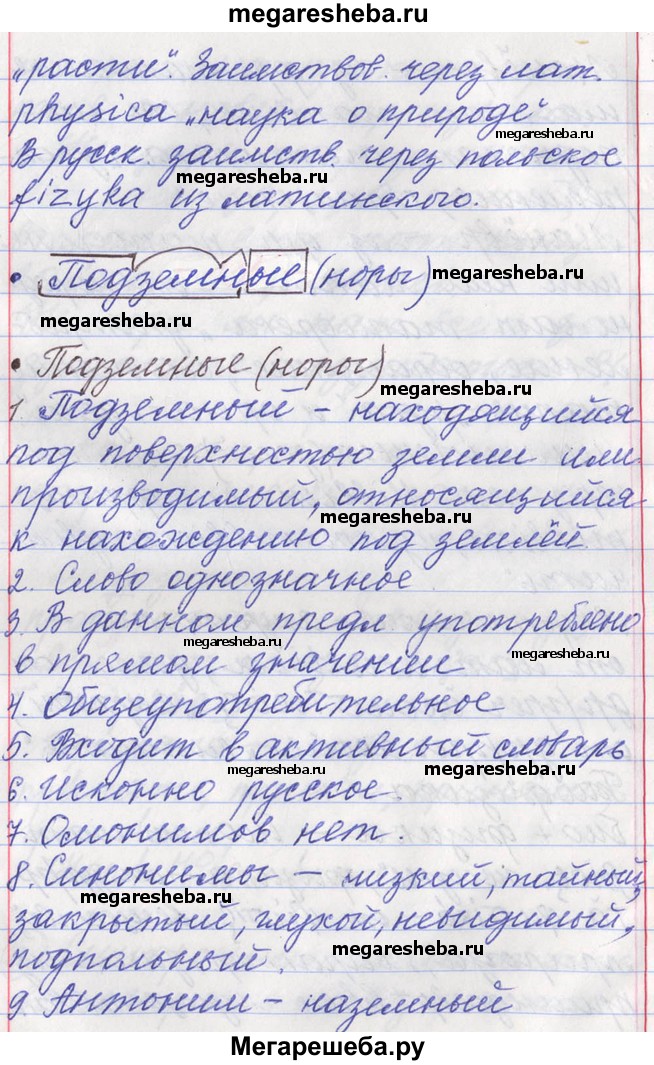 megaresheba.ru
„расти". Заимствов. через лат.
physica „наука о природе"
megaresheba.ru
В русск. заимств. через польское
megaresheba.ru
fizyka из латинского.
• Подземные (норы) megaresheba.ru
megaresheba.ru
• Подземные (норы)
megaresheba.ru
1. Подземный – находящийся
под поверхностью земли или
производимый, относящийся
megaresheba.ru
к нахождению под землёй.
2. Слово однозначное.
3. В данном предл. употреблено
megaresheba.ru megaresheba.ru
в прямом значении
4. Общеупотребительное
5. Входит в активный словарь
megaresheba.ru megaresheba.ru
6. Исконно русское.
7. Омонимов нет.
8. Синонимы – низкий, тайный,
megaresheba.ru
закрытый, глухой, невидимый,
megaresheba.ru
подпольный.
9. Антоним – наземный
Мегарешеба.ру